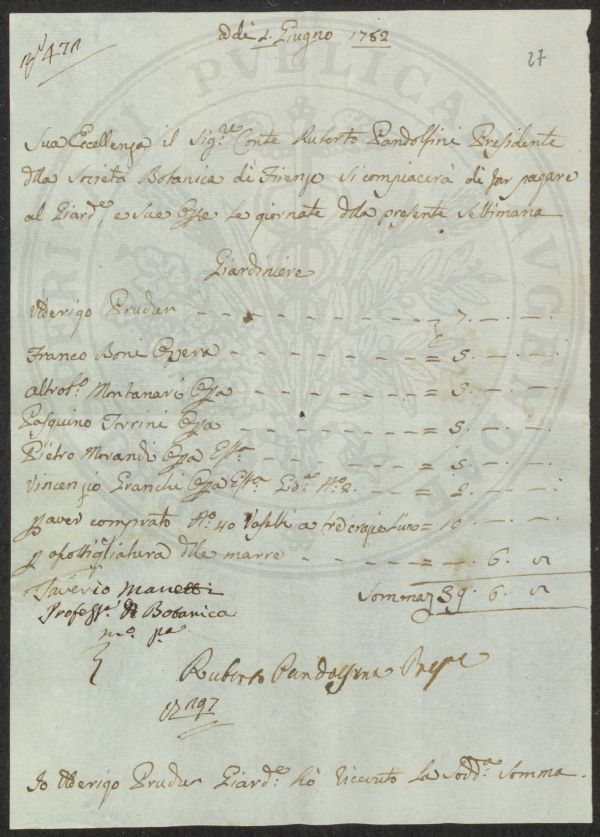 adi 1. Giugno 1782
N° 471
27
Sua Eccellenza il Sig.re Conte Ruberto Pandolfini Presidente
dlla Società Botanica di Firenze si compiacerà di far pagare
al Giard.e e sue Opre le giornate dlla presente Settimana
Giardiniere
Ulderigo Prucker - - - 7. — . —
Franco Boni Opera - - - = 5. — . —
Montanari Opa - - - = 5. — . —
Pasquino Torrini Opa - - - = 5. — . —
Pietro Morandi Opa - - - = 5. — . —
Vincenzio Granchi Opa N° 2. - - - = 2. — . —
p aver comprato N° 40 Vaselli a tre crazie l'uno = 10. — . —
p dlle marre - - - = —. 6. 8
Saverio Manetti
Somma 39. 6. 8
Profess.re di Botanica
mo. pa
Ruberto Pandolfini Prese
297
Io Ulderigo Prucker Giard.e hò ricevuto la Sodd.a Somma.